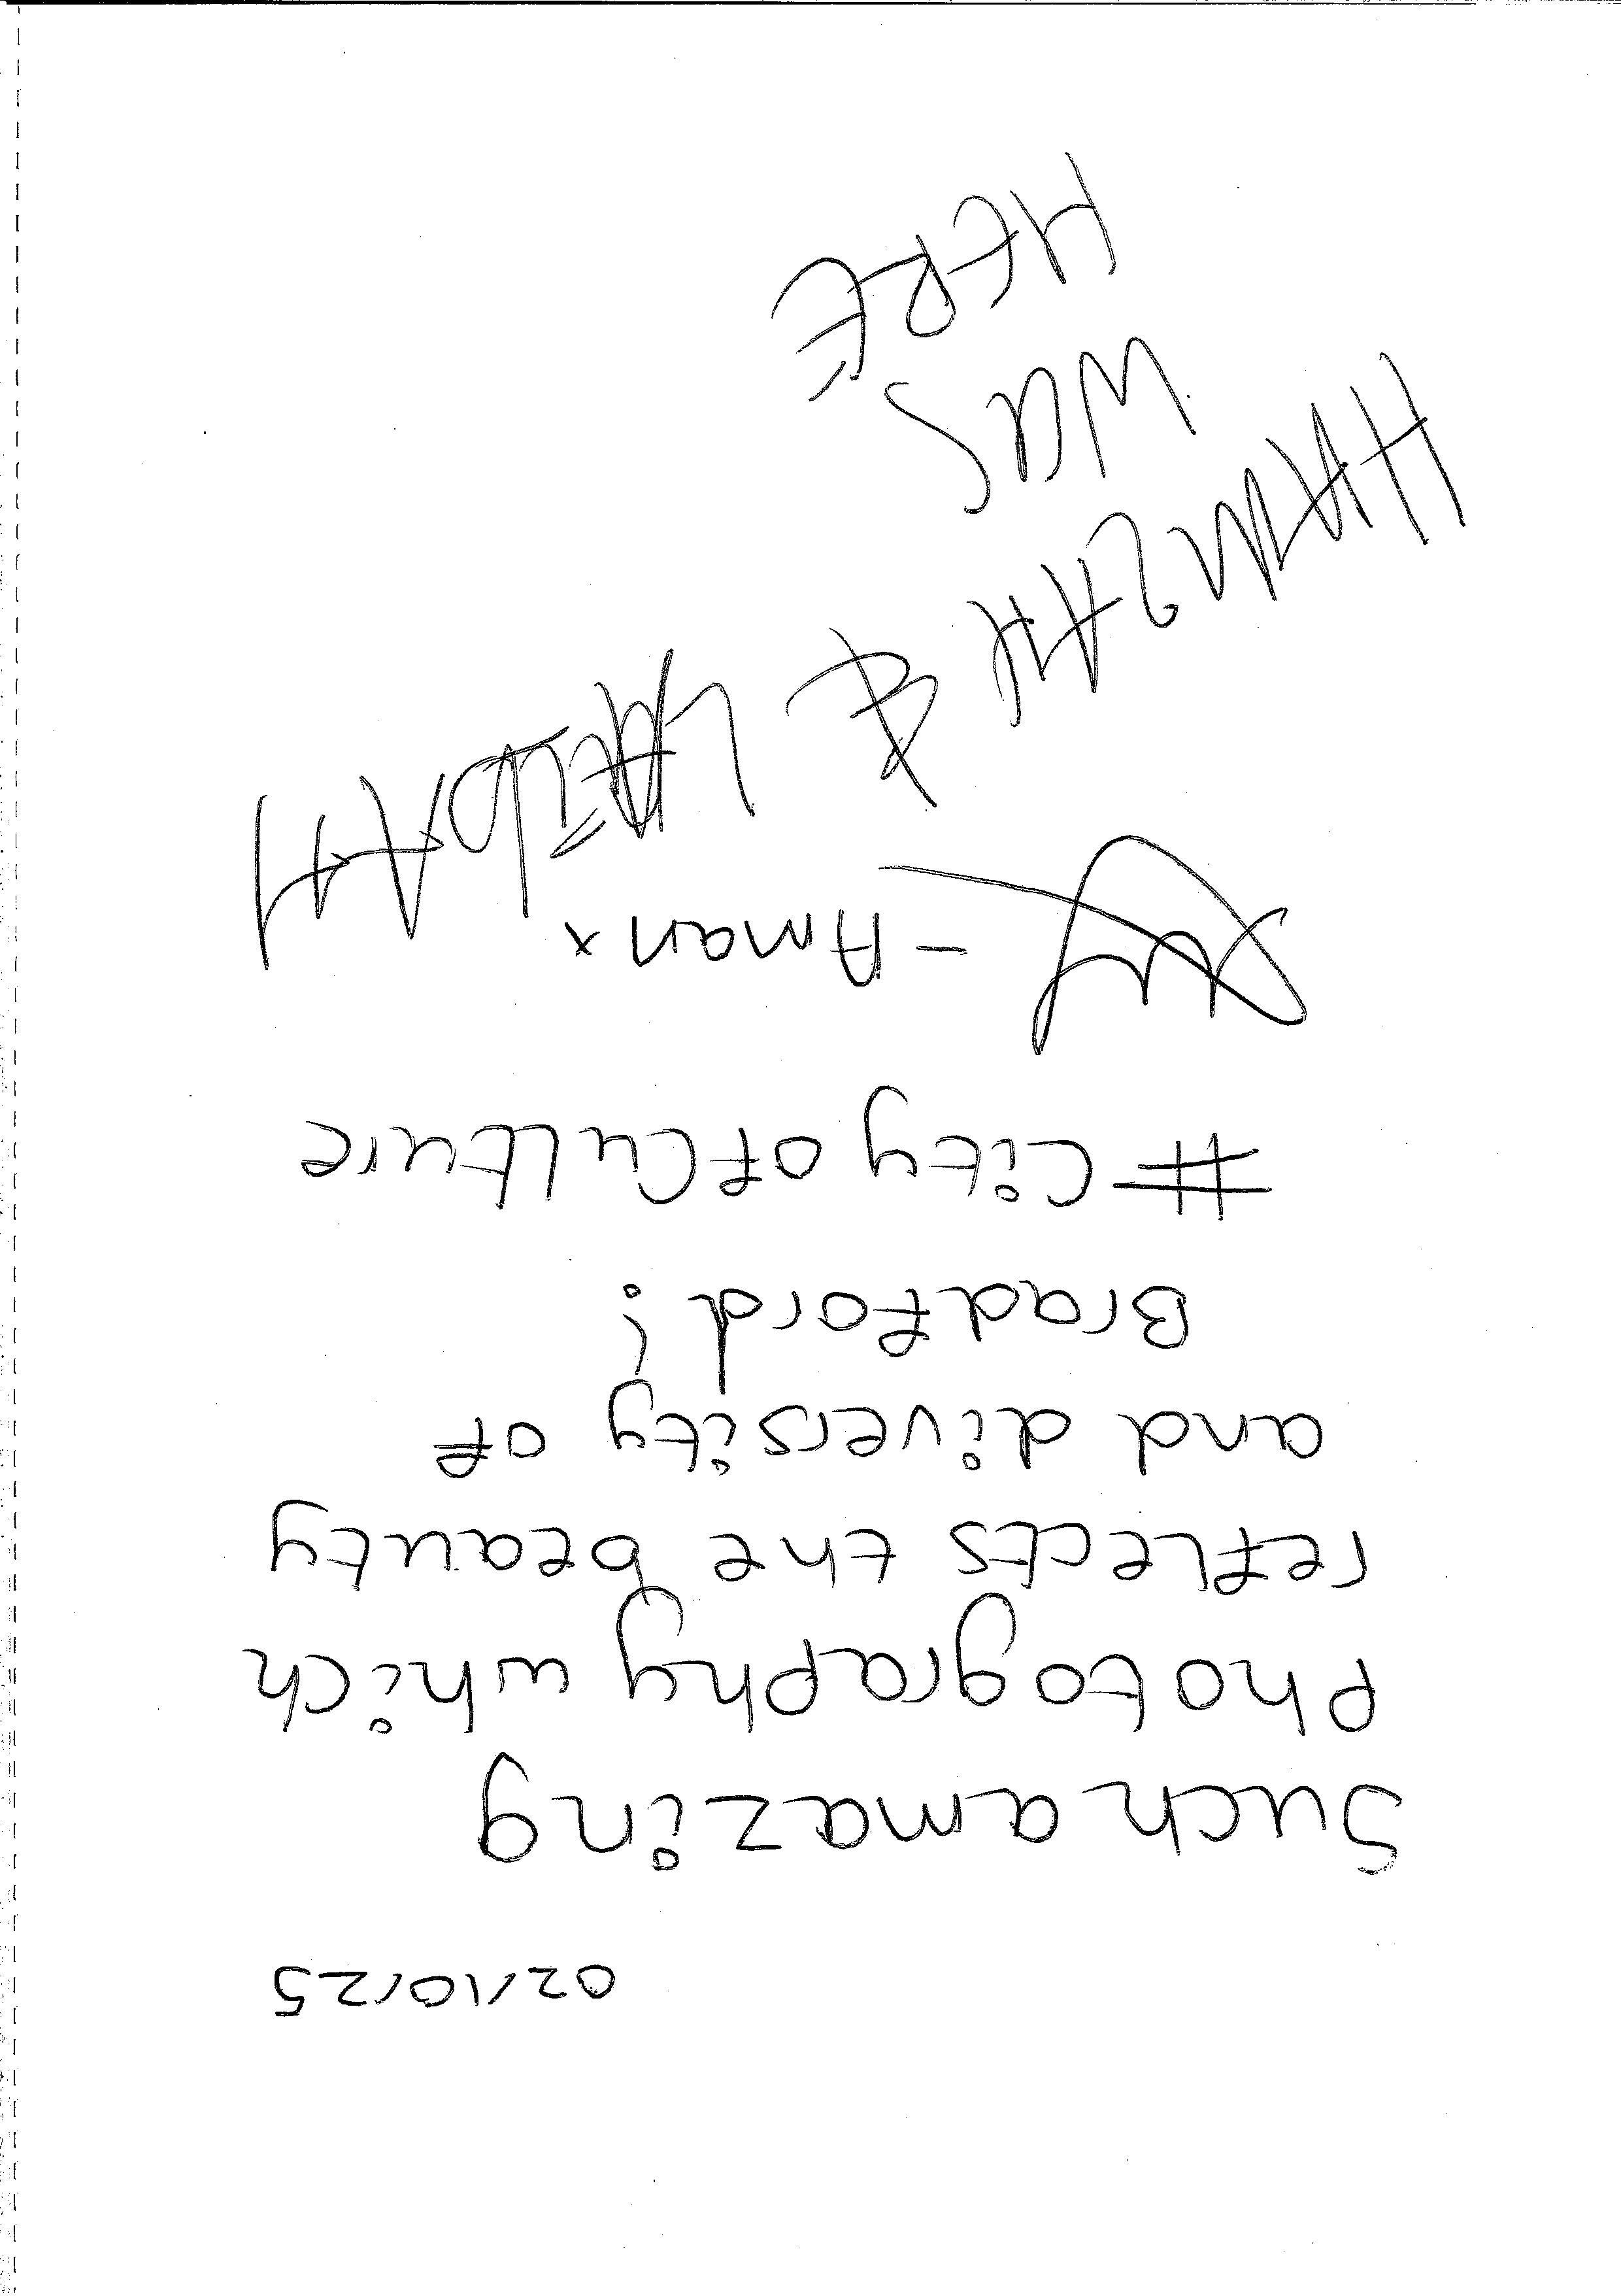 02/10/25
Such amazing
photography which
reflects the beauty
and diversity of
Bradford!
#CityofCulture
- Aman x
HAMZAH &
WAS
HERE